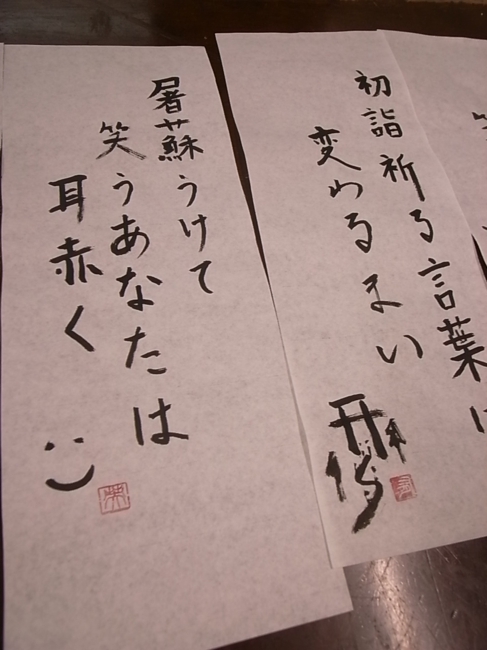 初詣祈る言葉は
変わるまい
屠蘇うけて
笑うあなたは
耳赤く